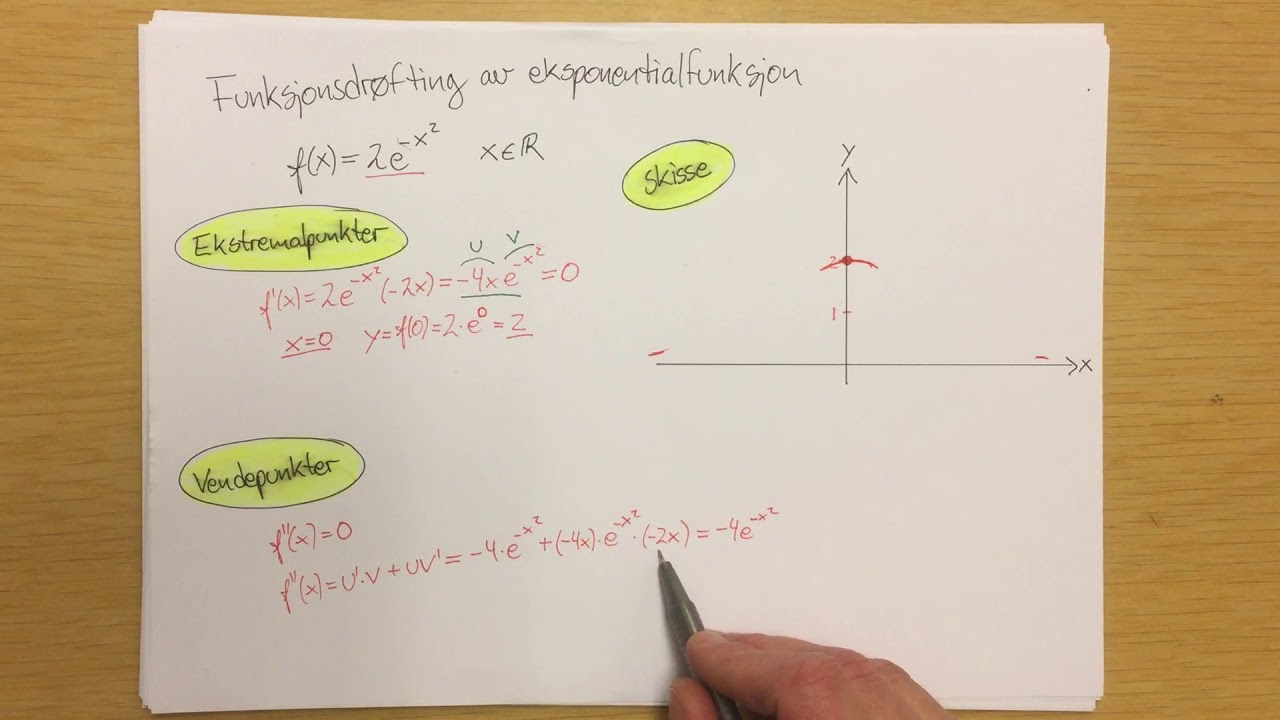 Funksjonsdrøfting av eksponentialfunksjon
f(x) = 2e^{-x^2} x∈ℝ
Ekstremalpunkter
u v
f'(x) = 2e^{-x^2}(-2x) = -4xe^{-x^2} = 0
x=0 y=f(0)=2·e^0=2
Vendepunkter
f''(x)=0
f''(x)=u'·v+uv'=-4·e^{-x^2}+(-4x)·e^{-x^2}·(-2x)=-4e^{-x^2}
Skisse
y
2
1
x